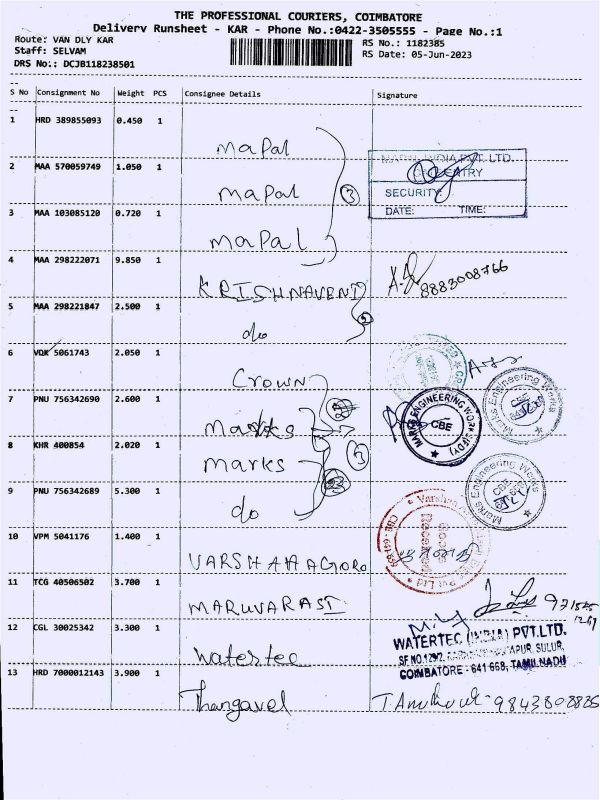 THE PROFESSIONAL COURIERS, COIMBATORE
Delivery Runsheet - KAR - Phone No.:0422-3505555 - Page No.:1
Route: VAN DLY KAR
Staff: SELVAM
DRS No.: DCJB118238501
RS No.: 1182385
RS Date: 05-Jun-2023
S No Consignment No Weight PCS Consignee Details Signature
1 HRD 389855093 0.450 1
mapal
2 MAA 570059749 1.050 1
mapal
3
INDIA PVT. LTD.
ENTRY
SECURITY:
DATE: TIME:
3 MAA 103085120 0.720 1
mapal
4 MAA 298222071 9.850 1
KRISHNAVENI
8883008766
5 MAA 298221847 2.500 1
do
6 VDK 5061743 2.050 1
Crown
7 PNU 756342690 2.600 1
marks
MARKS ENGINEERING WORKS
CBE
Marks Engineering Works
CBE
8 KHR 400854 2.020 1
marks
3
9 PNU 756342689 5.300 1
do
Marks Engineering Works
CBE
10 VPM 5041176 1.400 1
VARSHAAGORO
Varshaa
Pvt Ltd
Goods
Received
11 TCG 40506502 3.700 1
MARUVARASI
12 CGL 30025342 3.300 1
Watertec
WATERTEC (INDIA) PVT.LTD.
SULUR,
COIMBATORE - 641 668, TAMIL NADU
13 HRD 7000012143 3.900 1
Thangavel